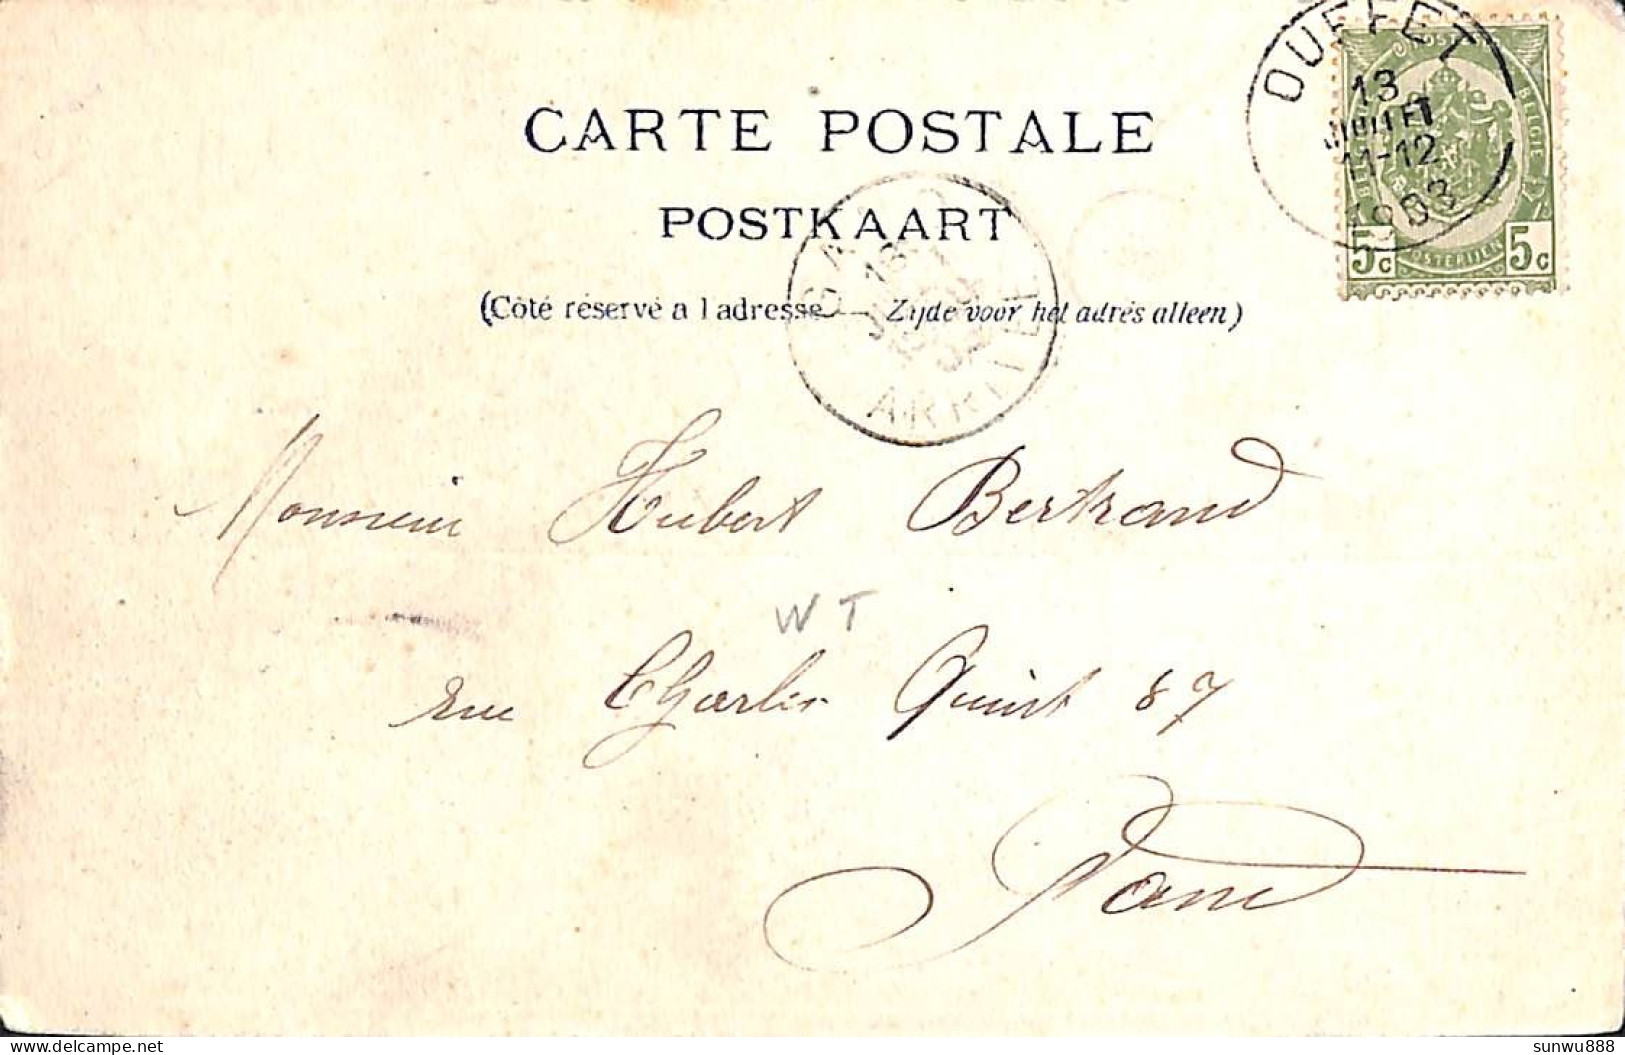 CARTE POSTALE
POSTKAART
(Côté réservé a l'adresse — Zijde voor het adres alleen)
OUFFET
13
JUILLET
11-12
1903
POSTERIJEN
BELGIE
5c 5c
GAND
13
ARRIVEE
Monsieur Hubert Bertrand
WT
rue Charles Quint 87
Gand
sunwu888